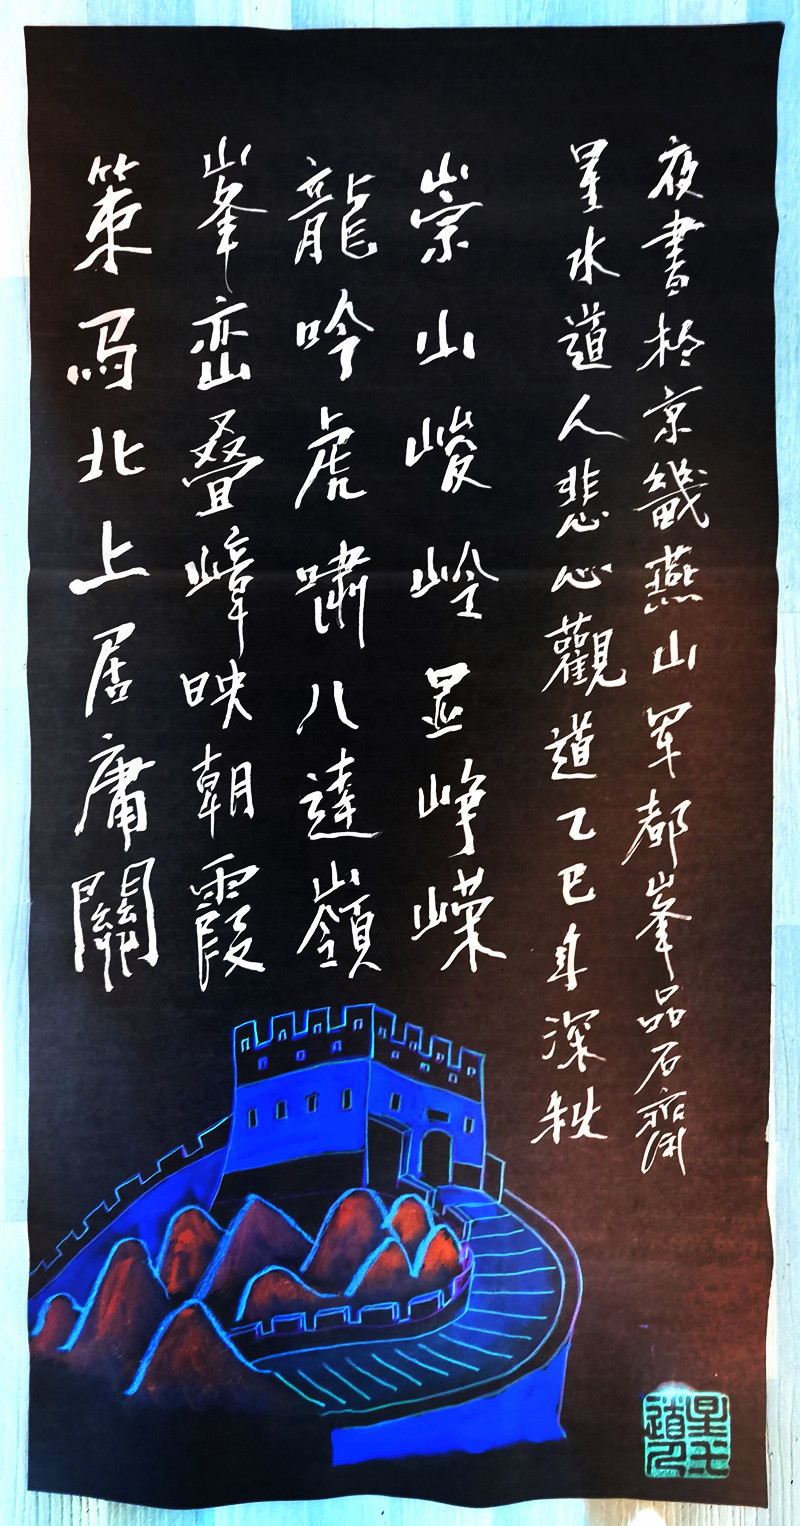 夜書於京畿燕山军都峯品石齋
星水道人悲心觀道乙巳年深秋
崇山峻岭显峥嵘
龍吟虎嘯八達嶺
峯峦叠嶂映朝霞
策马北上居庸關
星水道人